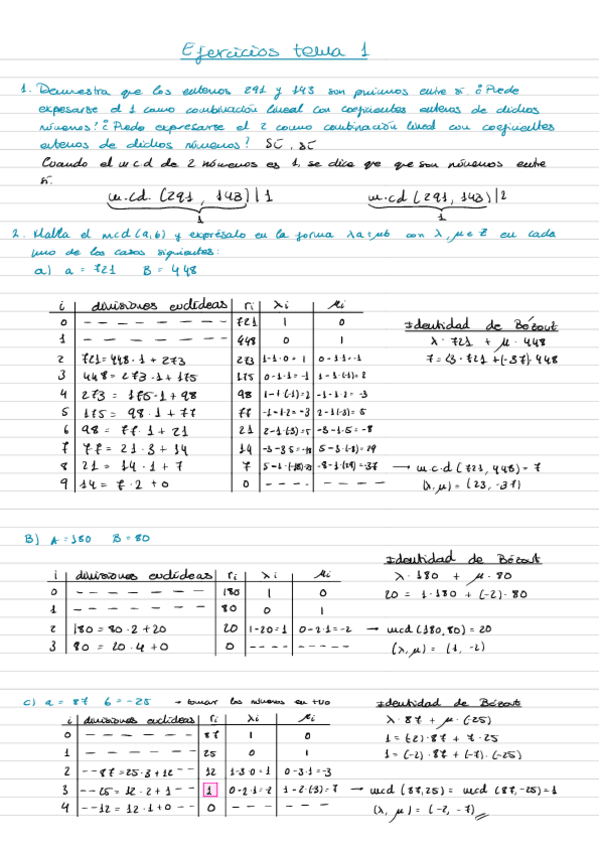 Ejercicios tema 1
1. Demuestra que los enteros 291 y 143 son primos entre sí. ¿Puede
expesarse el 1 como combinación lineal con coeficientes enteros de dichos
números? ¿Puedo expresarse el 2 como combinación lineal con coeficientes
enteros de dichos números? sí, sí
Cuando el m.c.d de 2 números es 1, se dice que que son números entre
sí.
m.cd. (291, 143) | 1 m.cd (291, 143) | 2
1 1
2. Halla el mcd (a,b) y exprésalo en la forma λa=μb con λ, μ ∈ Z en cada
uno de los casos siguientes:
a) a = 721 B = 448
i divisiones euclídeas ri λi μi
0 - - - - - - - - 721 1 0
1 - - - - - - - - 448 0 1
2 721=448·1+273 273 1-1·0=1 0-1·1=-1
3 448=273·1+175 175 0-1·1=-1 1-1·(-1)=2
4 273=175·1+98 98 1-1·(-1)=2 -1-1·2=-3
5 175=98·1+77 77 -1-1·2=-3 2-1·(-3)=5
6 98=77·1+21 21 2-1·(-3)=5 -3-1·5=-8
7 77=21·3+14 14 -3-3·5=-18 5-3·(-8)=29
8 21=14·1+7 7 5-1·(-18)=23 -8-1·(29)=-37 → m.c.d (721, 448) = 7
9 14=7·2+0 0 - - - - - - - - (λ,μ) = (23, -37)
Identidad de Bézout
λ·721 + μ·448
7=23·721+(-37)·448
B) A=180 B=80
i divisiones euclídeas ri λi μi
0 - - - - - - - 180 1 0
1 - - - - - - - 80 0 1
2 180=80·2+20 20 1-2·0=1 0-2·1=-2 → mcd (180, 80) = 20
3 80=20·4+0 0 - - - - - - - - - (λ,μ) = (1, -2)
Identidad de Bézout
λ·180 + μ·80
20 = 1·180 + (-2)·80
c) a = 87 b = -25 → tomar los números en +vo
i divisiones euclídeas ri λi μi
0 - - - - - - - 87 1 0
1 - - - - - - - 25 0 1
2 --87=25·3+12-- 12 1-3·0=1 0-3·1=-3
3 --25=12·2+1-- 1 0-2·1=-2 1-2·(-3)=7 → mcd (87,25) = mcd (87,-25)=1
4 --12=12·1+0-- 0 - - - - - - (λ, μ) = (-2, -7)
Identidad de Bézout
λ·87 + μ·(-25)
1=(-2)·87 + 7·25
1=(-2)·87 + (-7)·(-25)